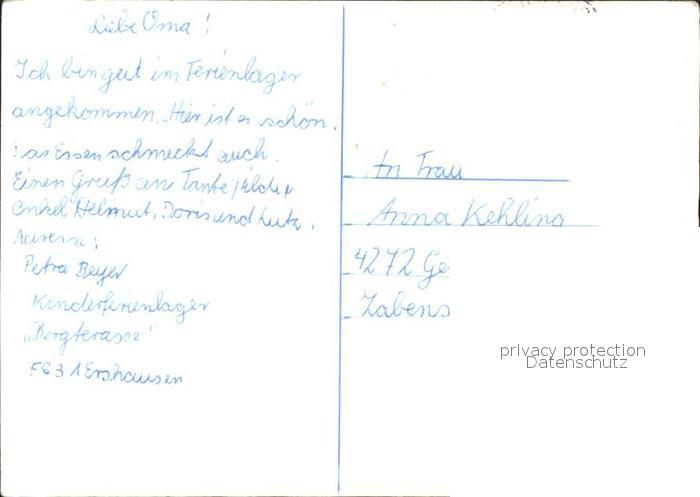 Liebe Oma!
Ich bin gut im Ferienlager
angekommen. Hier ist es schön.
Das Essen schmeckt auch.
Einen Gruß an Tante Hilde,
Onkel Helmut, Doris und Lutz.
Adresse:
Petra Beyer
Kinderferienlager
„Bergterasse"
5631 Ershausen
An Frau
Anna Kehling
4272 Ge
Zabens
privacy protection
Datenschutz